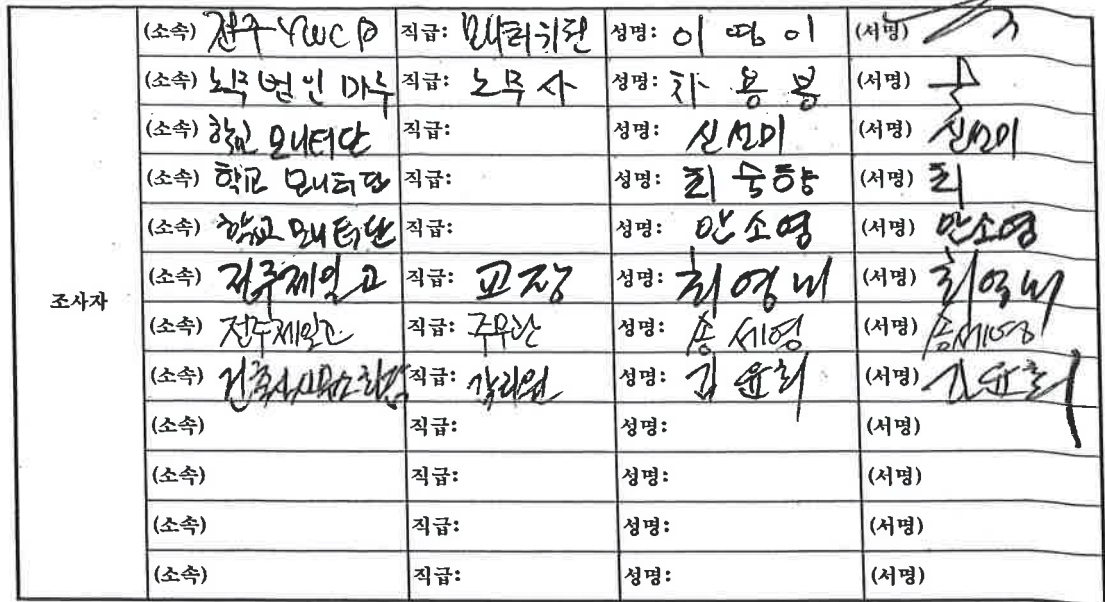 (소속) 전주YWCA 직급: 모니터위원 성명: 이 명 이 (서명)
(소속) 노무법인 마루 직급: 노무사 성명: 차 용 봉 (서명)
(소속) 학교 모니터단 직급: 성명: 신선미 (서명) 신선미
(소속) 학교 모니터단 직급: 성명: 최 숙 향 (서명) 최
(소속) 학교 모니터단 직급: 성명: 안소영 (서명) 안소영
조사자 (소속) 전주제일고 직급: 교장 성명: 최영내 (서명) 최영내
(소속) 전주제일고 직급: 주무관 성명: 송 세영 (서명) 송세영
(소속) 건축사사무소 직급: 감리원 성명: 김 윤희 (서명) 김윤희
(소속) 직급: 성명: (서명)
(소속) 직급: 성명: (서명)
(소속) 직급: 성명: (서명)
(소속) 직급: 성명: (서명)